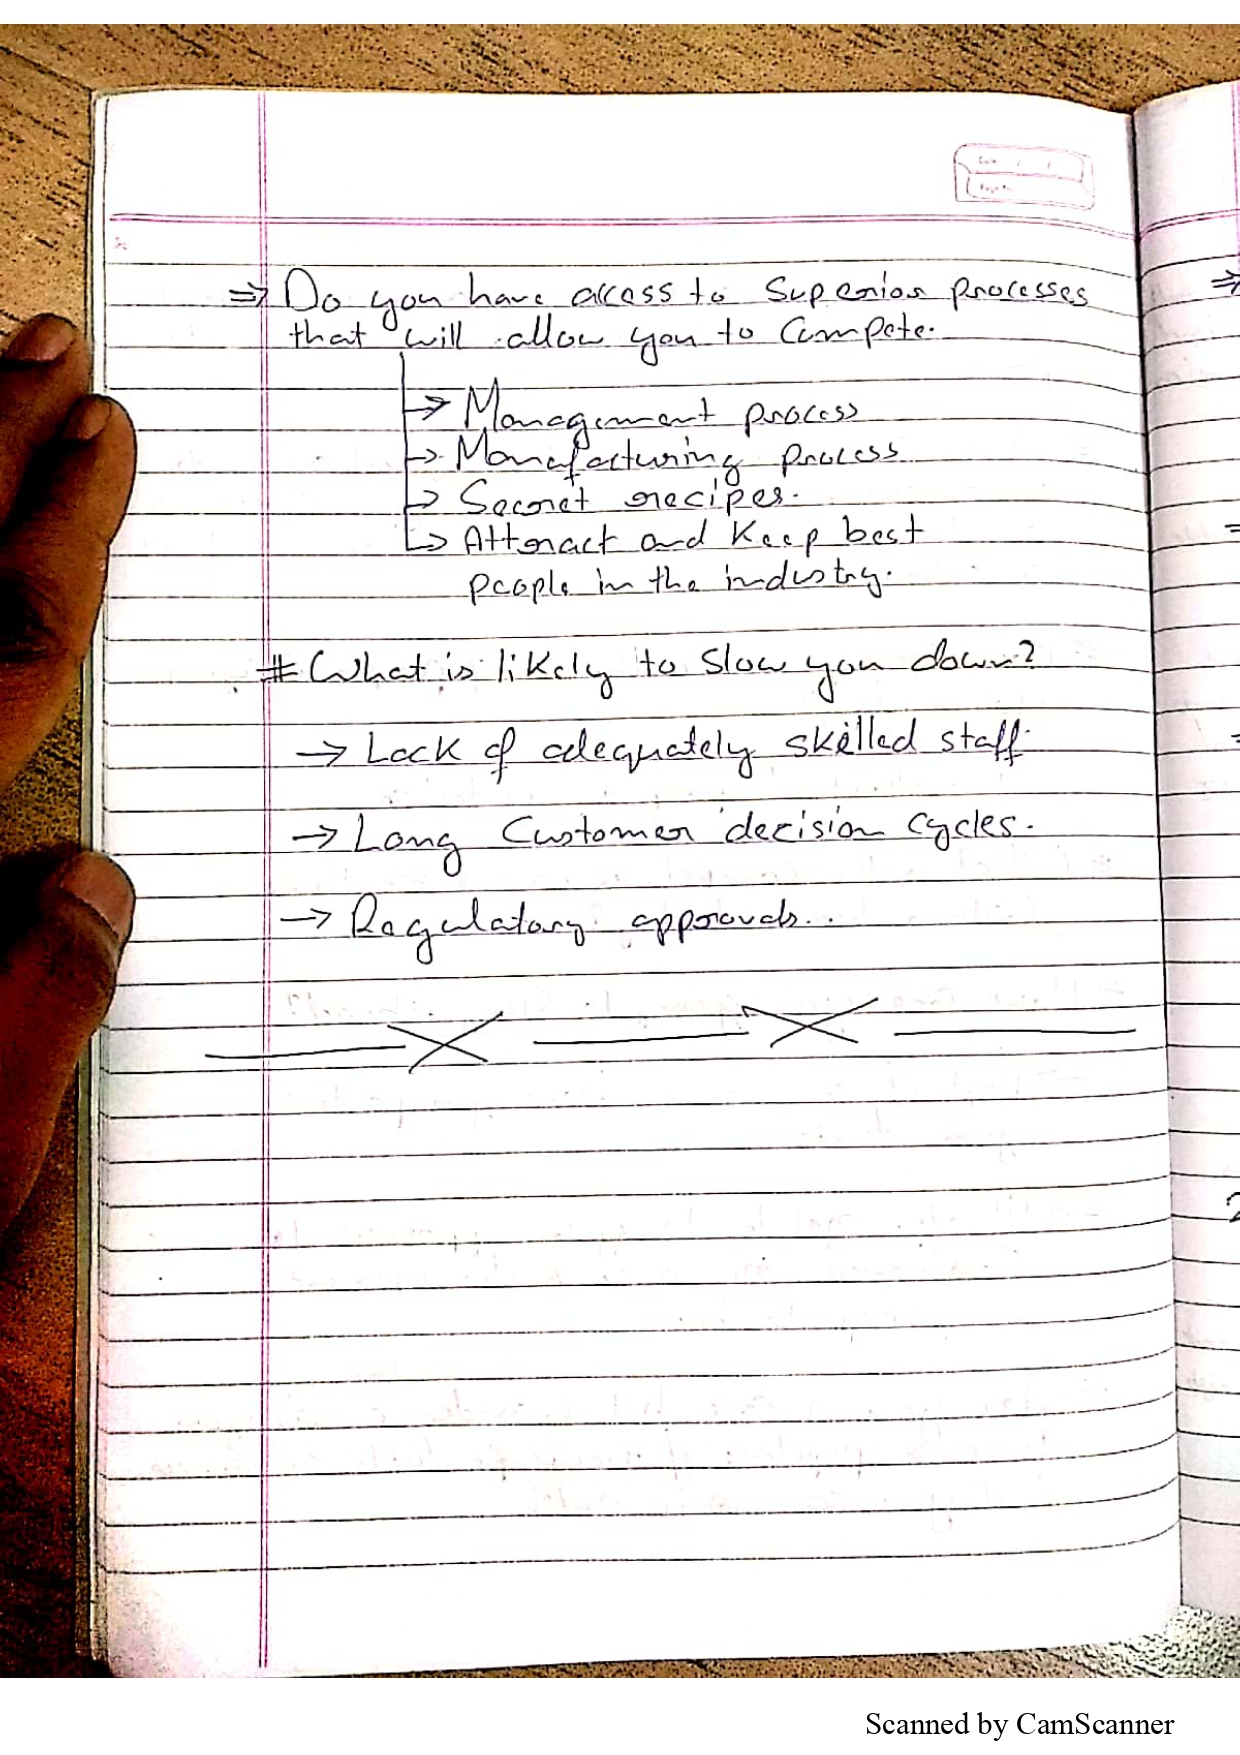 ⇒ Do you have access to Superior processes
that will allow you to Compete.
→ Management process
→ Manufacturing process
→ Secret recipes.
→ Attract and Keep best
people in the industry.
# What is likely to slow you down?
→ Lack of adequately skilled staff.
→ Long Customer decision cycles.
→ Regulatory approvals..
Scanned by CamScanner